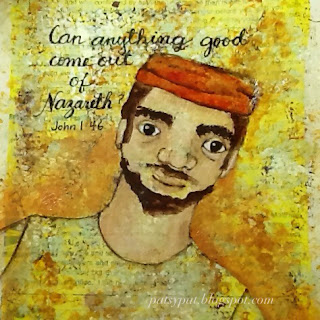 Can anything good
come out
of
Nazareth?
John 1:46
ipatsyput.blogspot.com